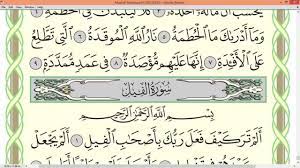 يَحْسَبُ أَنَّ مَالَهُۥٓ أَخْلَدَهُۥ ٣ كَلَّا لَيُنۢبَذَنَّ فِى ٱلْحُطَمَةِ ٤
وَمَآ أَدْرَىٰكَ مَا ٱلْحُطَمَةُ ٥ نَارُ ٱللَّهِ ٱلْمُوقَدَةُ ٦ ٱلَّتِى تَطَّلِعُ
عَلَى ٱلْأَفْـِٔدَةِ ٧ إِنَّهَا عَلَيْهِم مُّؤْصَدَةٌ ٨ فِى عَمَدٍ مُّمَدَّدَةٍۭ ٩
سُورَةُ الفِيلِ
بِسْمِ ٱللَّهِ ٱلرَّحْمَـٰنِ ٱلرَّحِيمِ
أَلَمْ تَرَ كَيْفَ فَعَلَ رَبُّكَ بِأَصْحَـٰبِ ٱلْفِيلِ ١ أَلَمْ يَجْعَلْ